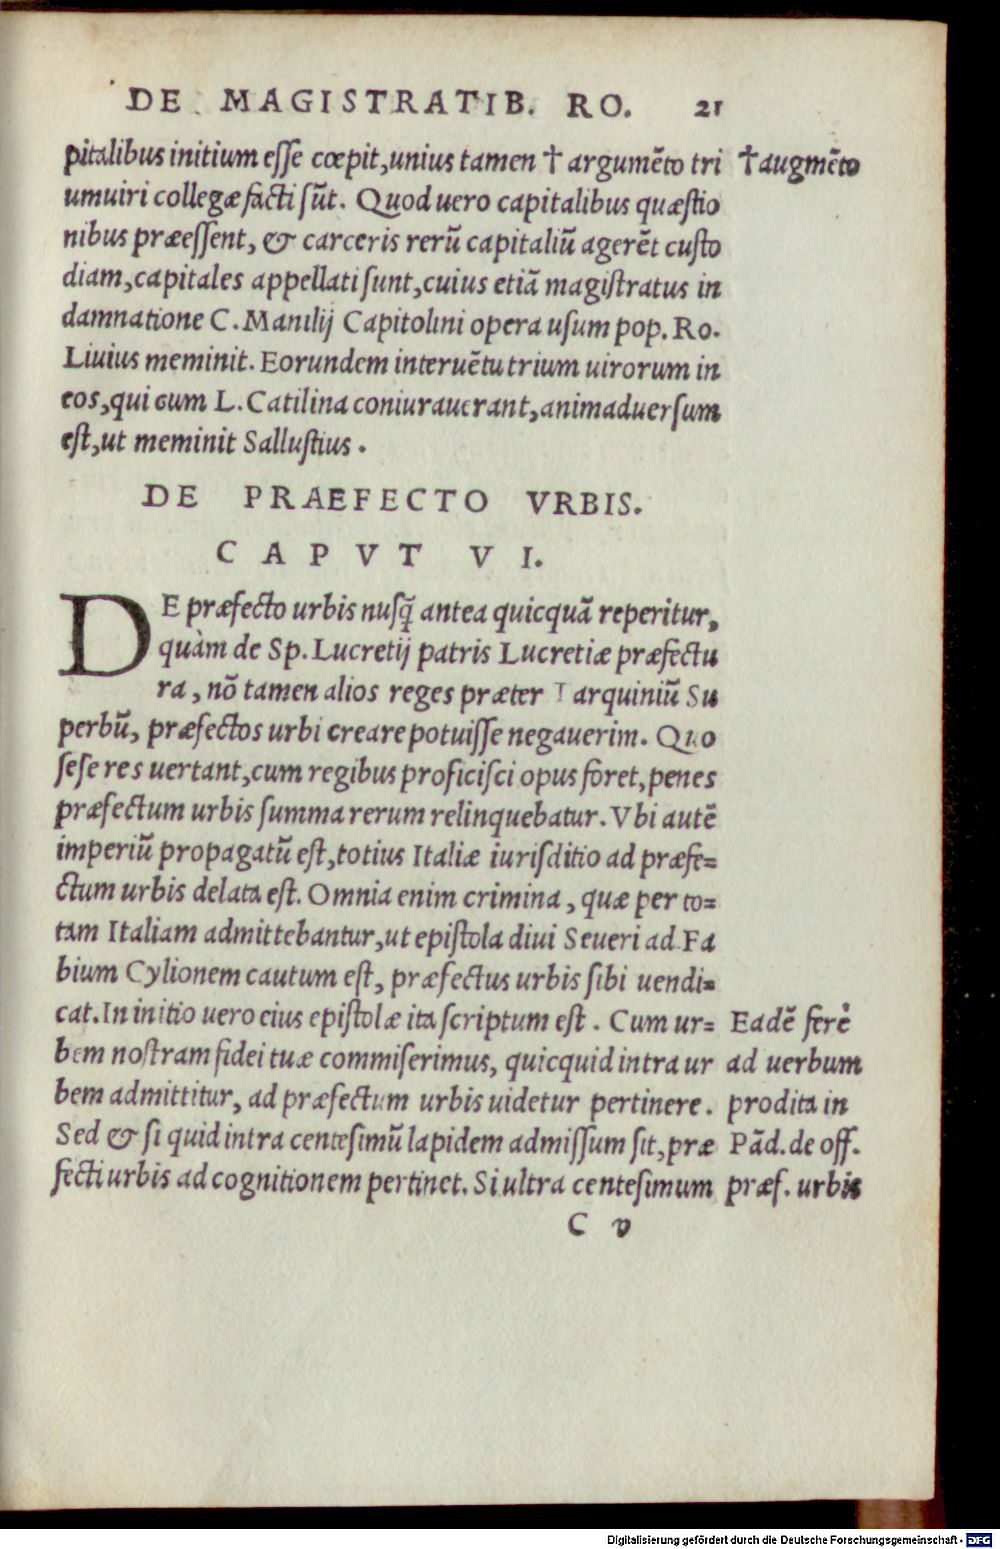 DE MAGISTRATIB. RO. 21
pitalibus initium esse cœpit, unius tamen † argumēto tri
† augmēto
umuiri collegæ facti sūt. Quod uero capitalibus quæstio
nibus præessent, & carceris rerū capitaliū agerēt custo
diam, capitales appellati sunt, cuius etiā magistratus in
damnatione C. Manlij Capitolini opera usum pop. Ro.
Liuius meminit. Eorundem interuētu trium uirorum in
eos, qui cum L. Catilina coniurauerant, animaduersum
est, ut meminit Sallustius.
DE PRAEFECTO VRBIS.
CAPVT VI.
DE præfecto urbis nusq̃ antea quicquā reperitur,
quàm de Sp. Lucretij patris Lucretiæ præfectu
ra, nō tamen alios reges præter Tarquiniū Su
perbū, præfectos urbi creare potuisse negauerim. Quo
sese res uertant, cum regibus proficisci opus foret, penes
præfectum urbis summa rerum relinquebatur. Vbi autē
imperiū propagatū est, totius Italiæ iurisditio ad præfe=
ctum urbis delata est. Omnia enim crimina, quæ per to=
tam Italiam admittebantur, ut epistola diui Seueri ad Fa
bium Cylionem cautum est, præfectus urbis sibi uendi=
cat. In initio uero eius epistolæ ita scriptum est. Cum ur=
bem nostram fidei tuæ commiserimus, quicquid intra ur
bem admittitur, ad præfectum urbis uidetur pertinere.
Sed & si quid intra centesimū lapidem admissum sit, præ
fecti urbis ad cognitionem pertinet. Si ultra centesimum
Eadē ferè
ad uerbum
prodita in
Pād. de off.
præf. urbis
C v
Digitalisierung gefördert durch die Deutsche Forschungsgemeinschaft - DFG